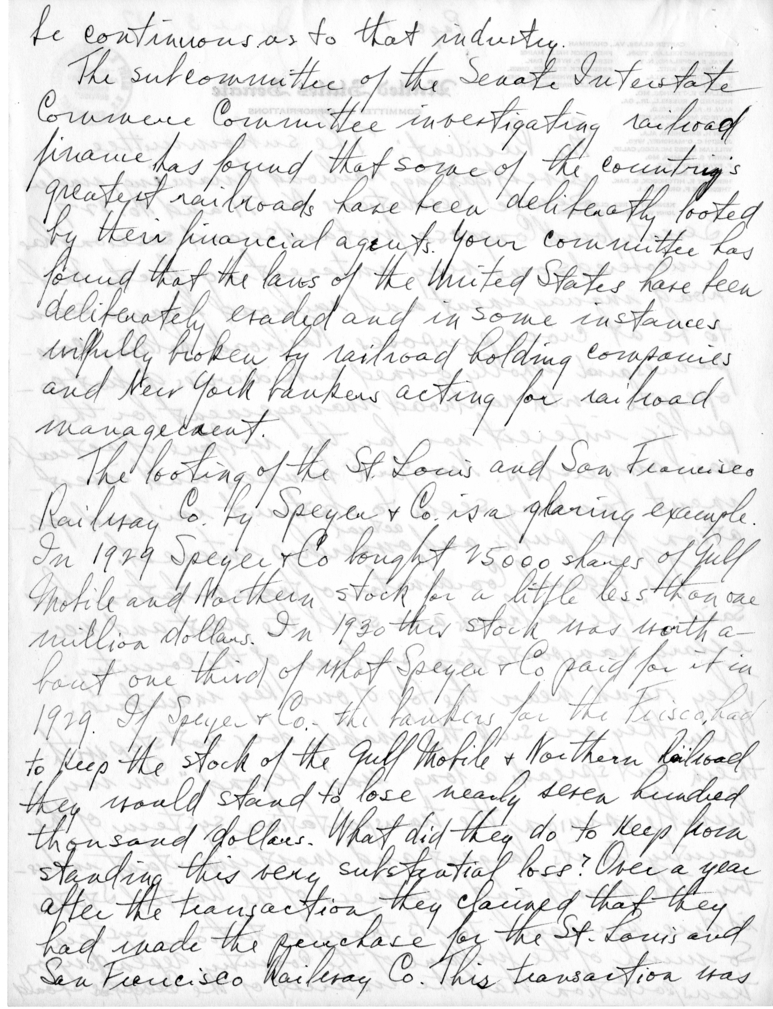 be continuous as to that industry.
The subcommittee of the Senate Interstate
Commerce Committee investigating railroad
finance has found that some of the country's
greatest railroads have been deliberatly looted
by their financial agents. Your committee has
found that the laws of the United States have been
deliberately evaded and in some instances
wilfully broken by railroad holding companies
and New York bankers acting for railroad
management.
The looting of the St. Louis and San Francisco
Railway Co. by Speyer & Co. is a glaring example.
In 1929 Speyer & Co bought 25000 shares of Gulf
Mobile and Northern stock for a little less than one
million dollars. In 1930 this stock was worth a-
bout one third of what Speyer & Co paid for it in
1929. If Speyer & Co. the bankers for the Frisco, had
to keep the stock of the Gulf Mobile & Northern Railroad
they would stand to lose nearly seven hundred
thousand dollars. What did they do to keep from
standing this very substantial loss? Over a year
after the transaction they claimed that they
had made the purchase for the St. Louis and
San Francisco Railway Co. This transaction was